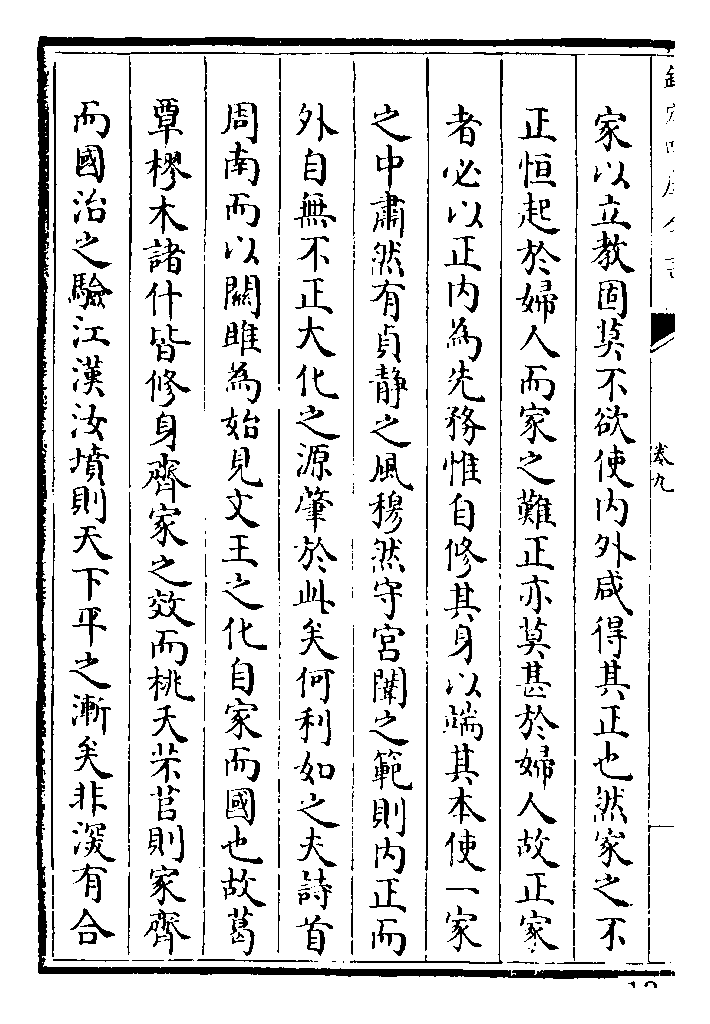 欽定四庫全書
卷九
家以立教固莫不欲使内外咸得其正也然家之不
正恒起於婦人而家之難正亦莫甚於婦人故正家
者必以正内為先務惟自修其身以端其本使一家
之中肅然有貞静之風穆然守宫闈之範則内正而
外自無不正大化之源肇於此矣何利如之夫詩首
周南而以關雎為始見文王之化自家而國也故葛
覃樛木諸什皆修身齊家之效而桃夭芣苢則家齊
而國治之驗江漢汝墳則天下平之漸矣非深有合